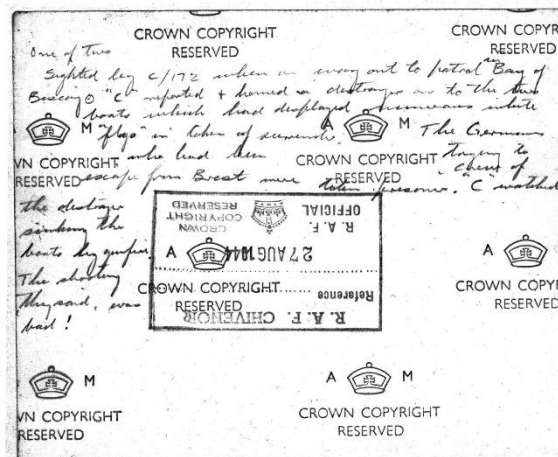 CROWN COPYRIGHT
RESERVED
CROWN COPYR
RESERVED
One of two
Sighted by C/172 when on way out to patrol in Bay of
Biscay "C" reported + homed a destroyer on to the two
boats which had displayed numerous white
"flags" in token of surrender. The Germans
who had been trying to
escape from Brest were taken prisoner. Crew of "C" watched
the destroyer
sinking the
boats by gunfire.
The shooting
they said, was
bad!
M
A M
WN COPYRIGHT
RESERVED
CROWN COPYRIGHT
RESERVED
R.A.F. CHIVENOR
Reference
27 AUG 1944
R.A.F.
OFFICIAL
CROWN
COPYRIGHT
RESERVED
A
CROWN COPYRIGHT
RESERVED
A
CROWN COPYR
RESERVED
M
WN COPYRIGHT
RESERVED
A M
CROWN COPYRIGHT
RESERVED